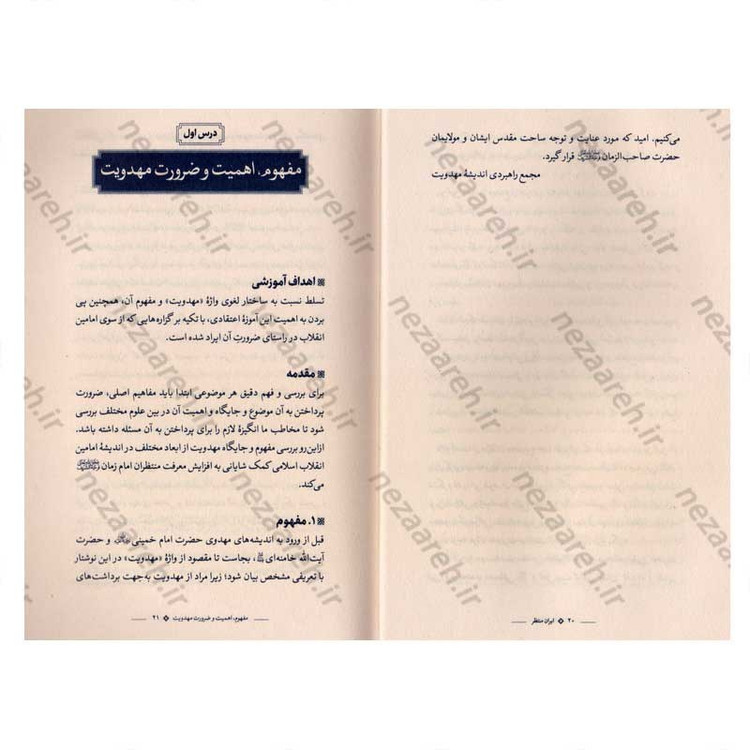 می‌کنیم. امید که مورد عنایت و توجه ساحت مقدس ایشان و مولایمان
حضرت صاحب‌الزمان قرار گیرد.
مجمع راهبردی اندیشهٔ مهدویت
۲۰ ایران منتظر
درس اول
مفهوم، اهمیت و ضرورت مهدویت
اهداف آموزشی
تسلط نسبت به ساختار لغوی واژهٔ «مهدویت» و مفهوم آن، همچنین پی
بردن به اهمیت این آموزهٔ اعتقادی، با تکیه بر گزاره‌هایی که از سوی امامین
انقلاب در راستای ضرورتِ آن ایراد شده است.
مقدمه
برای بررسی و فهم دقیق هر موضوعی ابتدا باید مفاهیم اصلی، ضرورت
پرداختن به آن موضوع و جایگاه و اهمیت آن در بین علوم مختلف بررسی
شود تا مخاطب ما انگیزهٔ لازم را برای پرداختن به آن مسئله داشته باشد.
ازاین‌رو بررسی مفهوم و جایگاه مهدویت از ابعاد مختلف در اندیشهٔ امامین
انقلاب اسلامی کمک شایانی به افزایش معرفت منتظران امام زمان
می‌کند.
۱. مفهوم
قبل از ورود به اندیشه‌های مهدوی حضرت امام خمینی و حضرت
آیت‌الله خامنه‌ای، بجاست تا مقصود از واژهٔ «مهدویت» در این نوشتار
با تعریفی مشخص بیان شود؛ زیرا مراد از مهدویت به‌جهت برداشت‌های
مفهوم، اهمیت و ضرورت مهدویت ۲۱
nezaareh.ir
nezaareh.ir
nezaareh.ir
nezaareh.ir
nezaareh.ir
nezaareh.ir
nezaareh.ir
nezaareh.ir
nezaareh.ir
nezaareh.ir
nezaareh.ir
nezaareh.ir